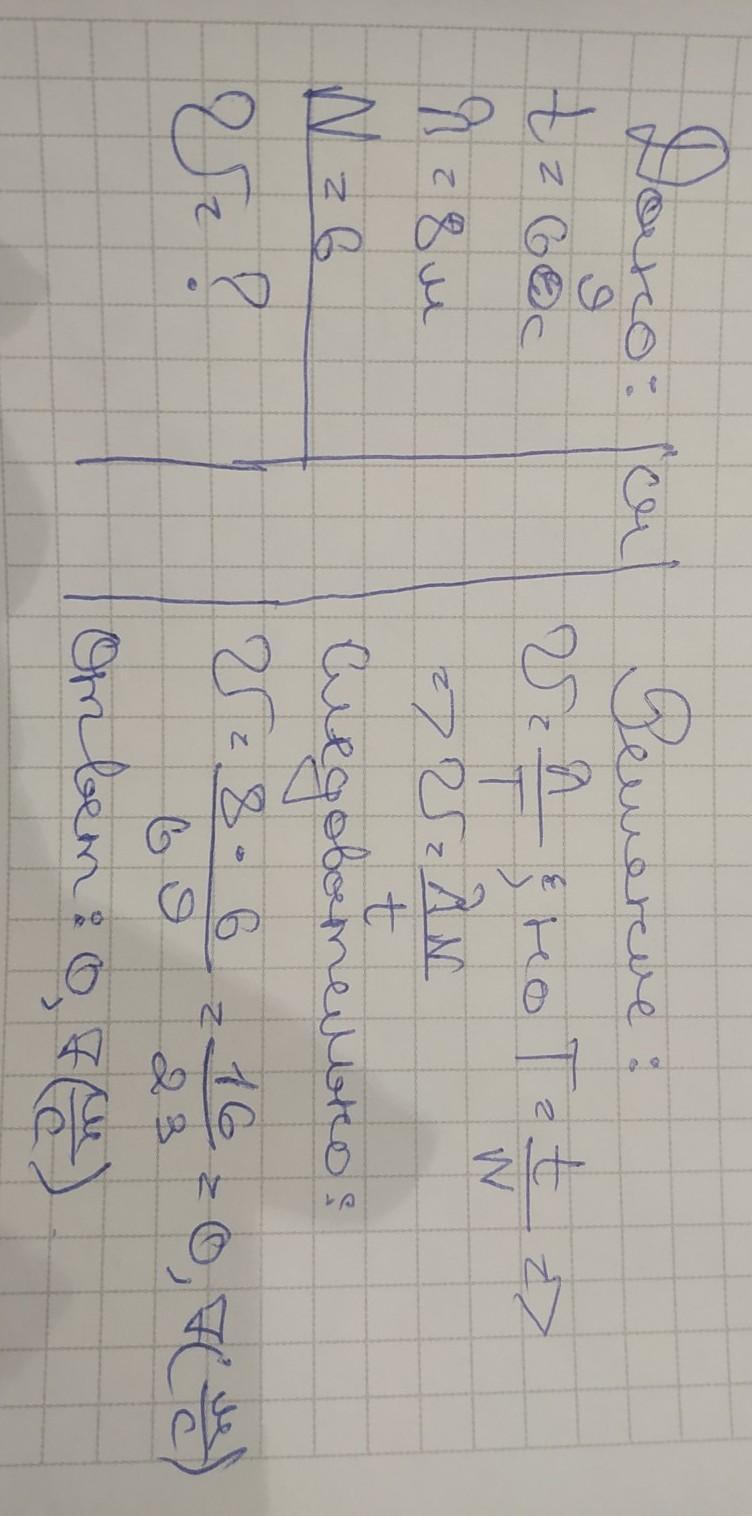 Дано:
t = 69 с
λ = 8 м
N = 6
V = ?
СИ
Решение:
V = λ/T; но T = t/N =>
=> V = λN/t
Следовательно:
V = 8 · 6 / 69 = 16/23 = 0,7 (м/с)
Ответ: 0,7 (м/с)